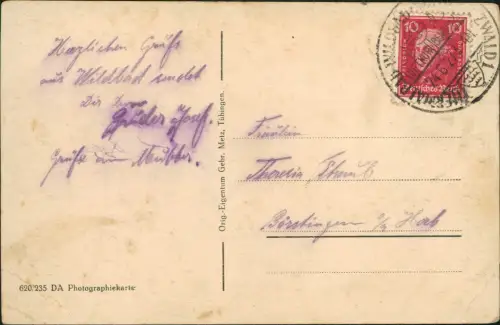 Herzlichen Gruß
aus Wildbad sendet
Dir
Bruder Josef.
Grüße an Mutter.
Orig.-Eigentum Gebr. Metz, Tübingen.
620/235 DA Photographiekarte
10 10
Deutsches Reich
Fräulein
Theresia
Börstingen a/N Horb